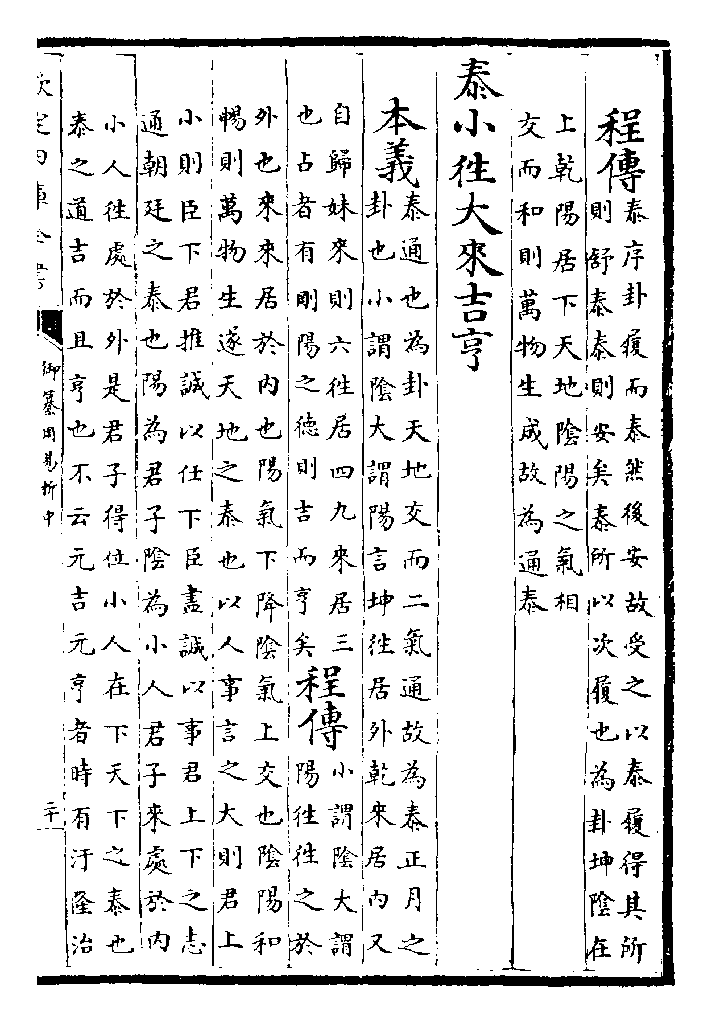 程傳
泰序卦履而泰然後安故受之以泰履得其所
則舒泰泰則安矣泰所以次履也為卦坤陰在
上乾陽居下天地陰陽之氣相
交而和則萬物生成故為通泰
泰小往大來吉亨
本義
泰通也為卦天地交而二氣通故為泰正月之
卦也小謂陰大謂陽言坤往居外乾來居內又
自歸妹來則六往居四九來居三
也占者有剛陽之德則吉而亨矣
程傳
小謂陰大謂
陽往往之於
外也來來居於內也陽氣下降陰氣上交也陰陽和
暢則萬物生遂天地之泰也以人事言之大則君上
小則臣下君推誠以任下臣盡誠以事君上下之志
通朝廷之泰也陽為君子陰為小人君子來處於內
小人往處於外是君子得位小人在下天下之泰也
泰之道吉而且亨也不云元吉元亨者時有汙隆治
欽定四庫全書
御纂周易折中
二十